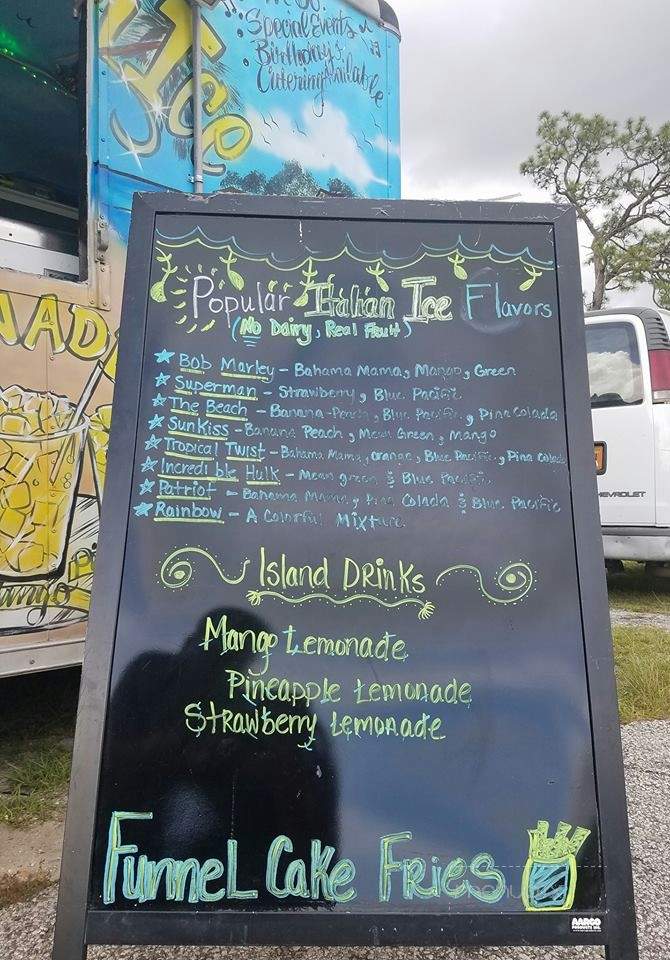 Special Events
Birthdays
Catering Available
Ice
NADE
Popular Italian Ice Flavors
(No Dairy, Real Fruit)
Bob Marley - Bahama Mama, Mango, Green
Superman - Strawberry, Blue Pacific
The Beach - Banana-Peach, Blue Pacific, Pina Colada
SunKiss - Banana Peach, Mean Green, Mango
Tropical Twist - Bahama Mama, Orange, Blue Pacific, Pina Colada
Incredible Hulk - Mean green & Blue Pacific
Patriot - Bahama Mama, Pina Colada & Blue Pacific
Rainbow - A Colorful Mixture
Island Drinks
Mango Lemonade
Pineapple Lemonade
Strawberry Lemonade
Funnel Cake Fries
AARCO
PRODUCTS INC.
CHEVROLET